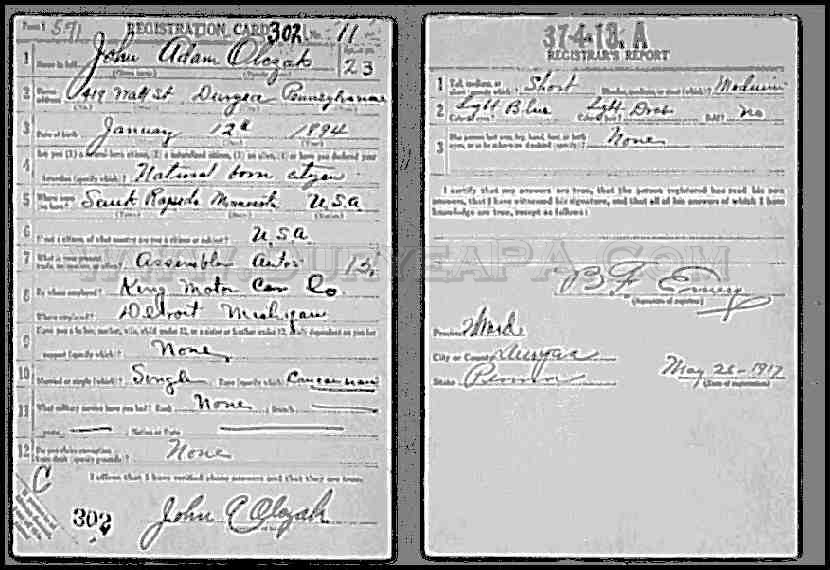 Form 1 591 REGISTRATION CARD 302 No. 11
1 Name in full John Adam Olczak 23
(Given name) (Family name)
2 Home address 419 Watt St Duryea Pennsylvania
3 Date of birth January 12th 1894
(Month) (Day) (Year)
4 Are you (1) a natural-born citizen, (2) a naturalized citizen, (3) an alien, (4) or have you declared your
intention (specify which)? Natural born citizen
5 Where were you born? U.S.A.
(Town) (State) (Nation)
6 If not a citizen, of what country are you a citizen or subject? U.S.A.
7 What is your present trade, occupation, or office? Assembler Autos
8 By whom employed? King Motor Car Co
Where employed? Detroit Michigan
9 Have you a father, mother, wife, child under 12, or a sister or brother under 12, solely dependent on you for
support (specify which)? None
10 Married or single (which)? Single Race (specify which)? Caucasian
11 What military service have you had? Rank None ; branch
years ; Nation or State
12 Do you claim exemption from draft (specify grounds)? None
I affirm that I have verified above answers and that they are true.
C
302 John A Olczak
37-4-13. A
REGISTRAR'S REPORT
1 Tall, medium, or short (specify which)? Short Slender, medium, or stout (which)? Medium
2 Color of eyes? Light Blue Color of hair? Bald? No
3 Has person lost arm, leg, hand, foot, or both
eyes, or is he otherwise disabled (specify)? None
I certify that my answers are true, that the person registered has read his own
answers, that I have witnessed his signature, and that all of his answers of which I have
knowledge are true, except as follows:
WWW.DURYEAPA.COM
(Signature of registrar)
Precinct
City or County Duryea
State Penna May 26-1917
(Date of registration)